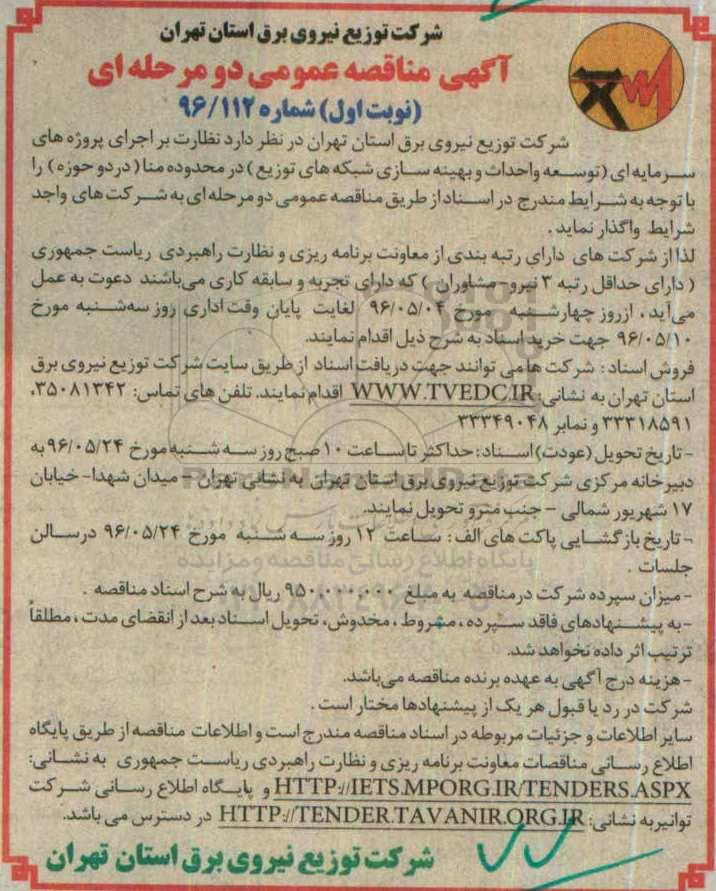 شرکت توزیع نیروی برق استان تهران
آگهی مناقصه عمومی دو مرحله ای
(نوبت اول) شماره ۹۶/۱۱۲
شرکت توزیع نیروی برق استان تهران در نظر دارد نظارت بر اجرای پروژه های
سرمایه ای (توسعه واحداث و بهینه سازی شبکه های توزیع) در محدوده منا (در دو حوزه) را
با توجه به شرایط مندرج در اسناد از طریق مناقصه عمومی دو مرحله ای به شرکت های واجد
شرایط واگذار نماید.
لذا از شرکت های دارای رتبه بندی از معاونت برنامه ریزی و نظارت راهبردی ریاست جمهوری
(دارای حداقل رتبه ۳ نیرو- مشاوران) که دارای تجربه و سابقه کاری می‌باشند دعوت به عمل
می‌آید، ازروز چهارشنبه مورخ ۹۶/۰۵/۰۴ لغایت پایان وقت اداری روز سه‌شنبه مورخ
۹۶/۰۵/۱۰ جهت خرید اسناد به شرح ذیل اقدام نمایند.
فروش اسناد: شرکت ها می توانند جهت دریافت اسناد از طریق سایت شرکت توزیع نیروی برق
استان تهران به نشانی: WWW.TVEDC.IR اقدام نمایند. تلفن های تماس: ۳۵۰۸۱۳۴۲،
۳۳۳۱۸۵۹۱ و نمابر ۳۳۳۴۹۰۴۸
- تاریخ تحویل (عودت) اسناد: حداکثر تا ساعت ۱۰ صبح روز سه شنبه مورخ ۹۶/۰۵/۲۴ به
دبیرخانه مرکزی شرکت توزیع نیروی برق استان تهران به نشانی تهران - میدان شهدا- خیابان
۱۷ شهریور شمالی - جنب مترو تحویل نمایند.
- تاریخ بازگشایی پاکت های الف: ساعت ۱۲ روز سه شنبه مورخ ۹۶/۰۵/۲۴ درسالن
جلسات.
- میزان سپرده شرکت در مناقصه به مبلغ ۹۵۰,۰۰۰,۰۰۰ ریال به شرح اسناد مناقصه.
- به پیشنهادهای فاقد سپرده، مشروط، مخدوش، تحویل اسناد بعد از انقضای مدت، مطلقاً
ترتیب اثر داده نخواهد شد.
- هزینه درج آگهی به عهده برنده مناقصه می‌باشد.
شرکت در رد یا قبول هر یک از پیشنهادها مختار است.
سایر اطلاعات و جزئیات مربوطه در اسناد مناقصه مندرج است و اطلاعات مناقصه از طریق پایگاه
اطلاع رسانی مناقصات معاونت برنامه ریزی و نظارت راهبردی ریاست جمهوری به نشانی:
HTTP://IETS.MPORG.IR/TENDERS.ASPX و پایگاه اطلاع رسانی شرکت
توانیر به نشانی: HTTP://TENDER.TAVANIR.ORG.IR در دسترس می باشد.
شرکت توزیع نیروی برق استان تهران